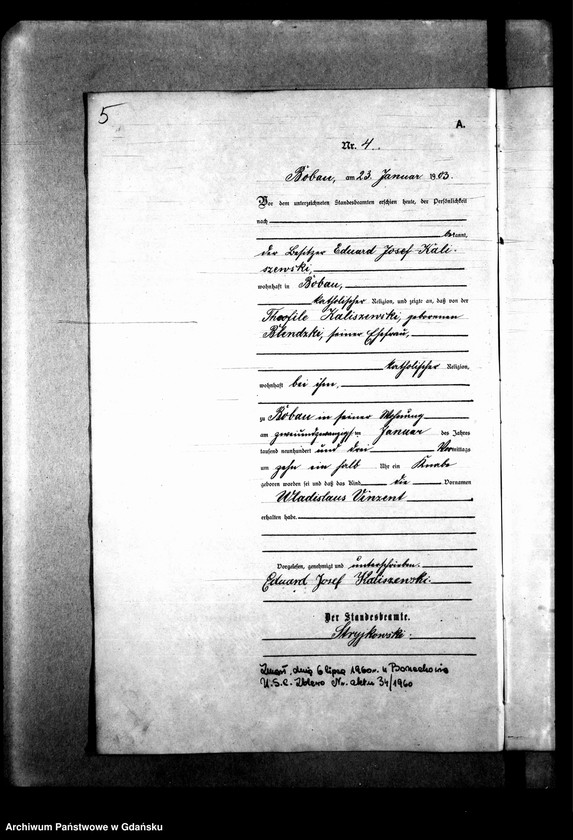 5
A.
Nr. 4.
Bobau, am 23. Januar 1903.
Vor dem unterzeichneten Standesbeamten erschien heute, der Persönlichkeit
nach
bekannt,
der Besitzer Eduard Josef Kali-
szewski,
wohnhaft in Bobau,
katholischer Religion, und zeigte an, daß von der
Theofile Kaliszewski, geborenen
Blendzki, seiner Ehefrau,
katholischer Religion,
wohnhaft bei ihm,
zu Bobau in seiner Wohnung
am zweiundzwanzigsten Januar des Jahres
tausend neunhundert und drei Vormittags
um zehn ein halb Uhr ein Knabe
geboren worden sei und daß das Kind die Vornamen
Wladislaus Vinzent
erhalten habe.
Vorgelesen, genehmigt und unterschrieben.
Eduard Josef Kaliszewski
Der Standesbeamte.
Stryjkowski.
Zmarł, dnia 6 lipca 1960r. w Borzechowie
U.S.C. Zblewo Nr. aktu 34/1960
Archiwum Państwowe w Gdańsku